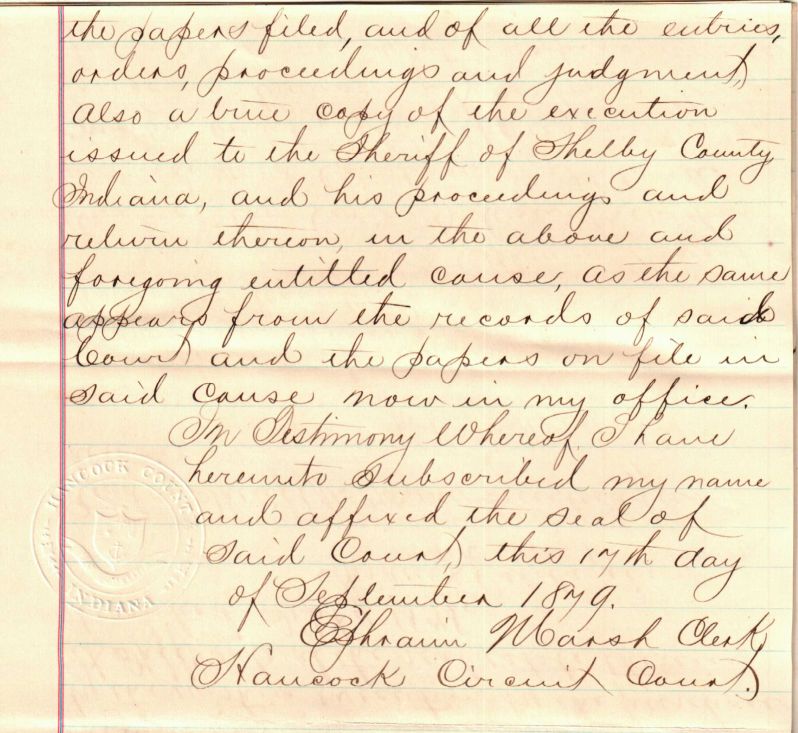 the papers filed, and of all the entries,
orders, proceedings and judgment,
Also a true copy of the execution
issued to the Sheriff of Shelby County
Indiana, and his proceedings and
return thereon, in the above and
foregoing entitled cause, as the same
appears from the records of said
Court and the papers on file in
said cause now in my office.
In Testimony Whereof, I have
hereunto subscribed my name
and affixed the seal of
said Court, this 17th day
of September 1879.
Ephraim Marsh Clerk,
Hancock Circuit Court.
HANCOCK COUNT
INDIANA